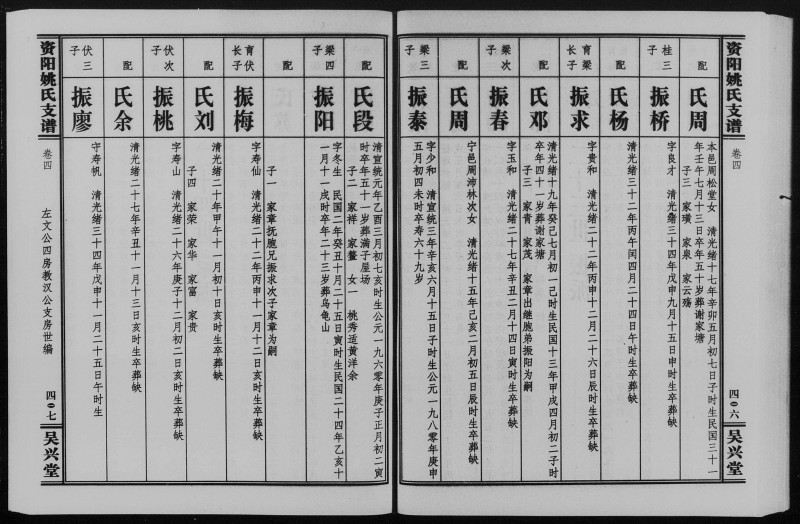 资阳姚氏支谱
卷四
四〇六
吴兴堂
配
周氏
本邑周松堂女 清光绪十七年辛卯五月初七日子时生民国三十一
年壬午七月十三日卒年五十岁葬谢家塘
子三 家璜 家泉 家云殇
桂三子
振桥
字良才 清光绪三十四年戊申九月十五日申时生卒葬缺
配
杨氏
清光绪三十二年丙午闰四月二十四日午时生卒葬缺
育梁长子
振求
字贵和 清光绪二十二年丙申十二月二十六日辰时生卒葬缺
配
邓氏
清光绪十九年癸己七月初一己时生民国十三年甲戌四月初二子时
卒年四十一岁葬谢家塘
子三 家青 家茂 家章出继胞弟振阳为嗣
梁次子
振春
字玉和 清光绪二十七年辛丑二月十四日寅时生卒葬缺
配
周氏
宁邑周沛林次女 清光绪十五年己亥二月初五日辰时生卒葬缺
梁三子
振泰
字少和 清宣统三年辛亥六月十五日子时生公元一九八零年庚申
五月初四未时卒寿六十九岁
配
段氏
清宣统元年乙酉三月初七亥时生公元一九六零年庚子正月初二寅
时卒年五十一岁葬满子屋场
子二 家祥 家鳌 女一 桃秀适黄洋余
梁四子
振阳
字冬生 民国二年癸丑十月二十五日寅时生民国二十四年乙亥十
一月十一戌时卒年二十三岁葬乌龟山
配
子一 家章抚胞兄振求次子家章为嗣
育伏长子
振梅
字寿仙 清光绪二十二年丙申十一月十二日亥时生卒葬缺
配
刘氏
清光绪二十年甲午十一月初十日亥时生卒葬缺
子四 家荣 家华 家富 家贵
伏次子
振桃
字寿山 清光绪二十六年庚子十二月初二日亥时生卒葬缺
配
余氏
清光绪二十七年辛丑十一月十三日亥时生卒葬缺
伏三子
振廖
字寿帆 清光绪三十四年戊申十一月二十五日午时生
资阳姚氏支谱
卷四
左文公四房教汉公支房世编
四〇七
吴兴堂